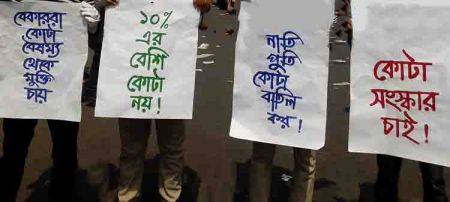 বেকাররা
কোটা
বৈষম্য
থেকে
মুক্তি
চায়
১০%
এর
বেশি
কোটা
নয়!
নাতি
পুতি
কোটা
বাতিল
কর!
কোটা
সংস্কার
চাই!